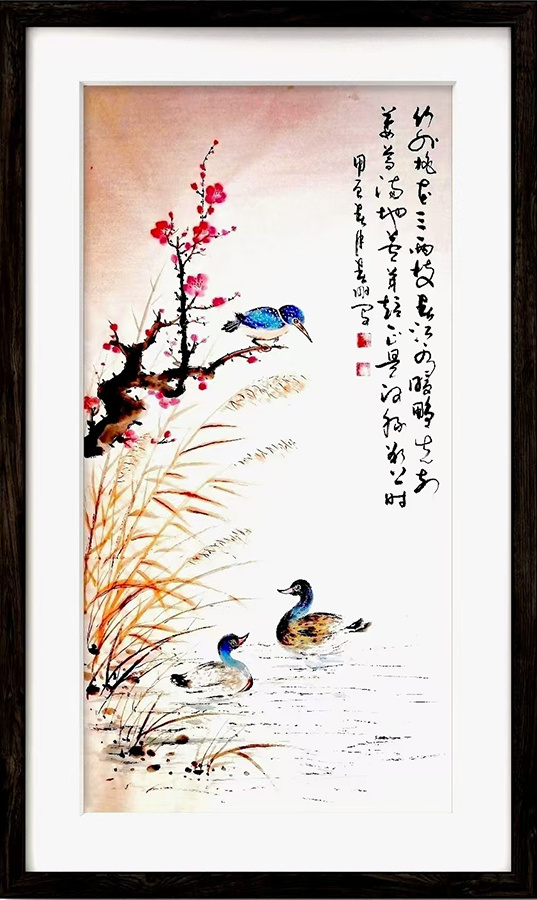 竹外桃花三两枝春江水暖鸭先知
蒌蒿满地芦芽短正是河豚欲上时
春月明写